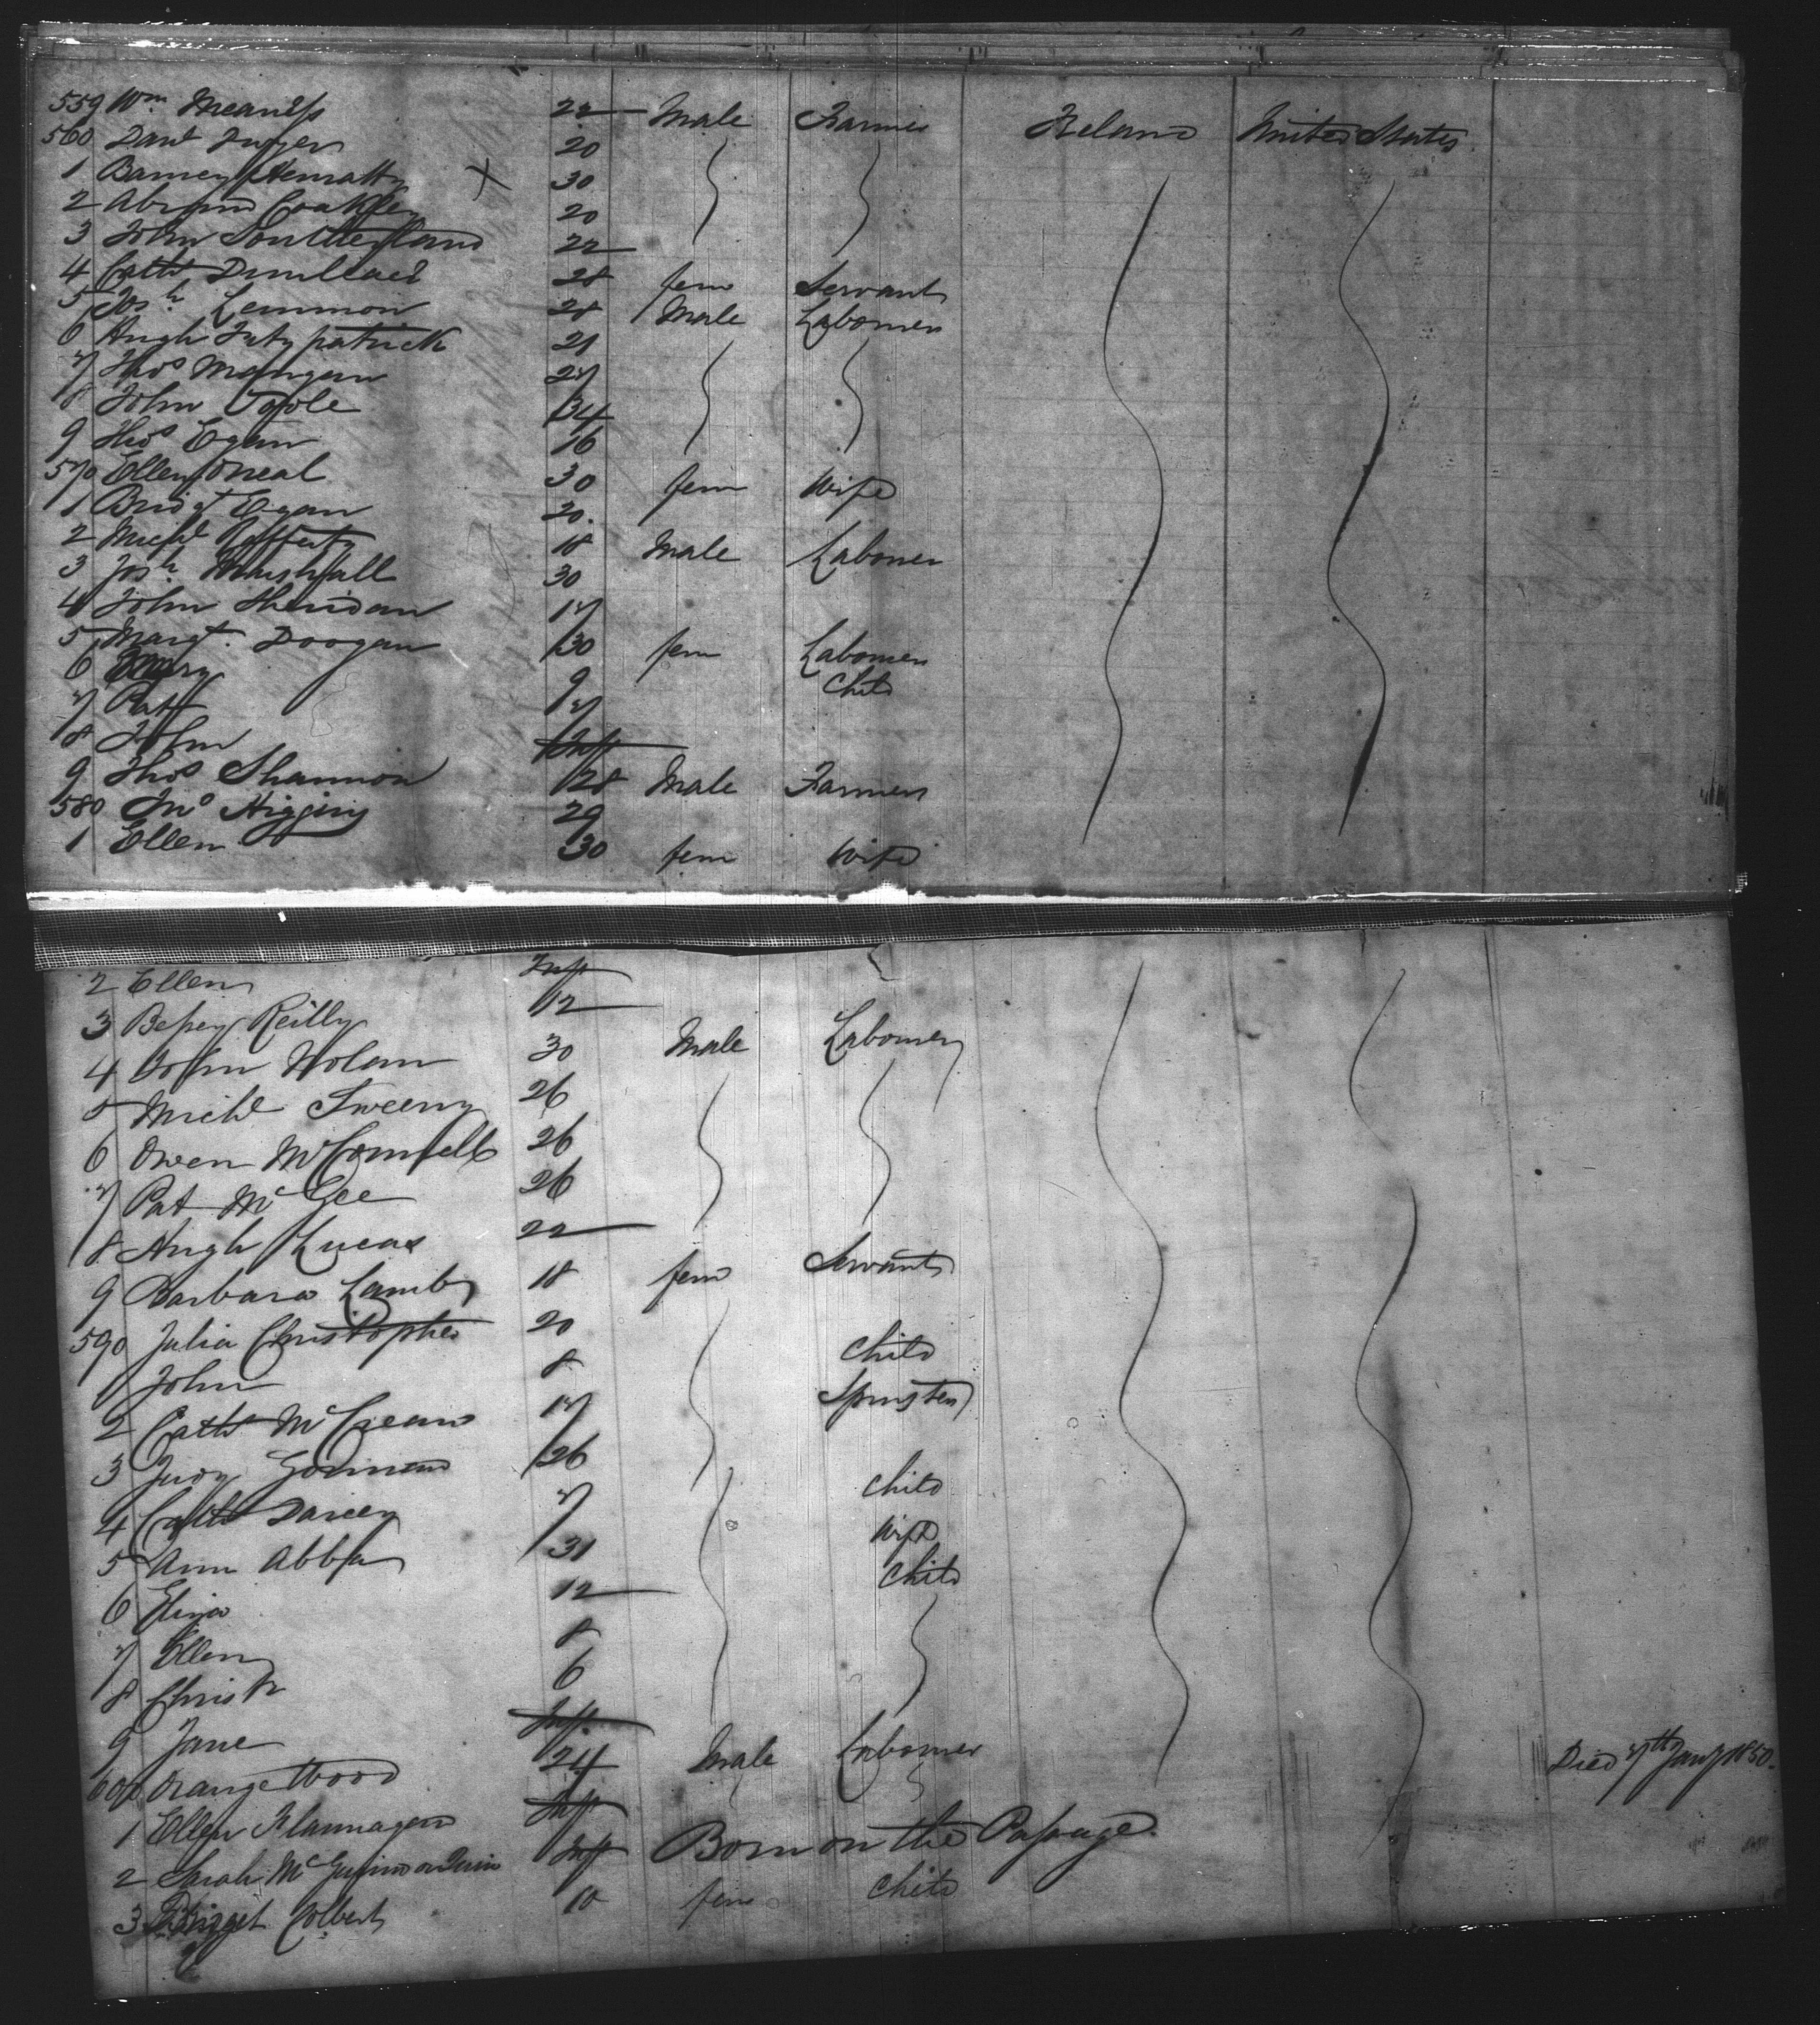 559 Wm Meanes 22 Male Farmer Ireland United States
560 Danl Dwyer 20
1 Barney Henratty X 30
2 Abrm Coakley 20
3 John Southerland 22
4 Cath 28 fem Servant
5 Josh Lemmon 28 Male Labourer
6 Hugh Fitzpatrick 21
7 Thos Mangan 27
8 John Toole 34
9 Thos Egan 16
570 Ellen Oneal 30 fem Wife
1 Bridgt Egan 20.
2 Michl Rafferty 18 Male Labourer
3 Josh Marshall 30
4 John Sheridan 17
5 Margt. Doogan 30 fem Labourer
6 Mary 9 Child
7 Patt 7
8 John Inft
9 Thos Shannon 28 Male Farmer
580 Jno Higgins 29
1 Ellen 30 fem Wife
2 Ellen Inft
3 Bessey Reilly 12
4 John Nolan 30 Male Labourer
5 Michl Sweeny 26
6 Owen McConnell 26
7 Pat McGee 26
8 Hugh Lucas 22
9 Barbara Lamb 18 fem Servant
590 Julia Christopher 20
1 John 8 Child
2 Cath McCreans 17 Spinster
3 Judy 26
4 Cath Darcey 7 Child
5 Ann Abba 31 Wife
6 Eliza 12 Child
7 Ellen 8
8 Christr 6
9 Jane Inft.
600 Orange Wood 24 Male Labourer Died 7th Jany 1850.
1 Ellen Flannagan Inft
2 Sarah Mc Inft Born on the Passage.
3 Bridget Colbert 10 fem Child